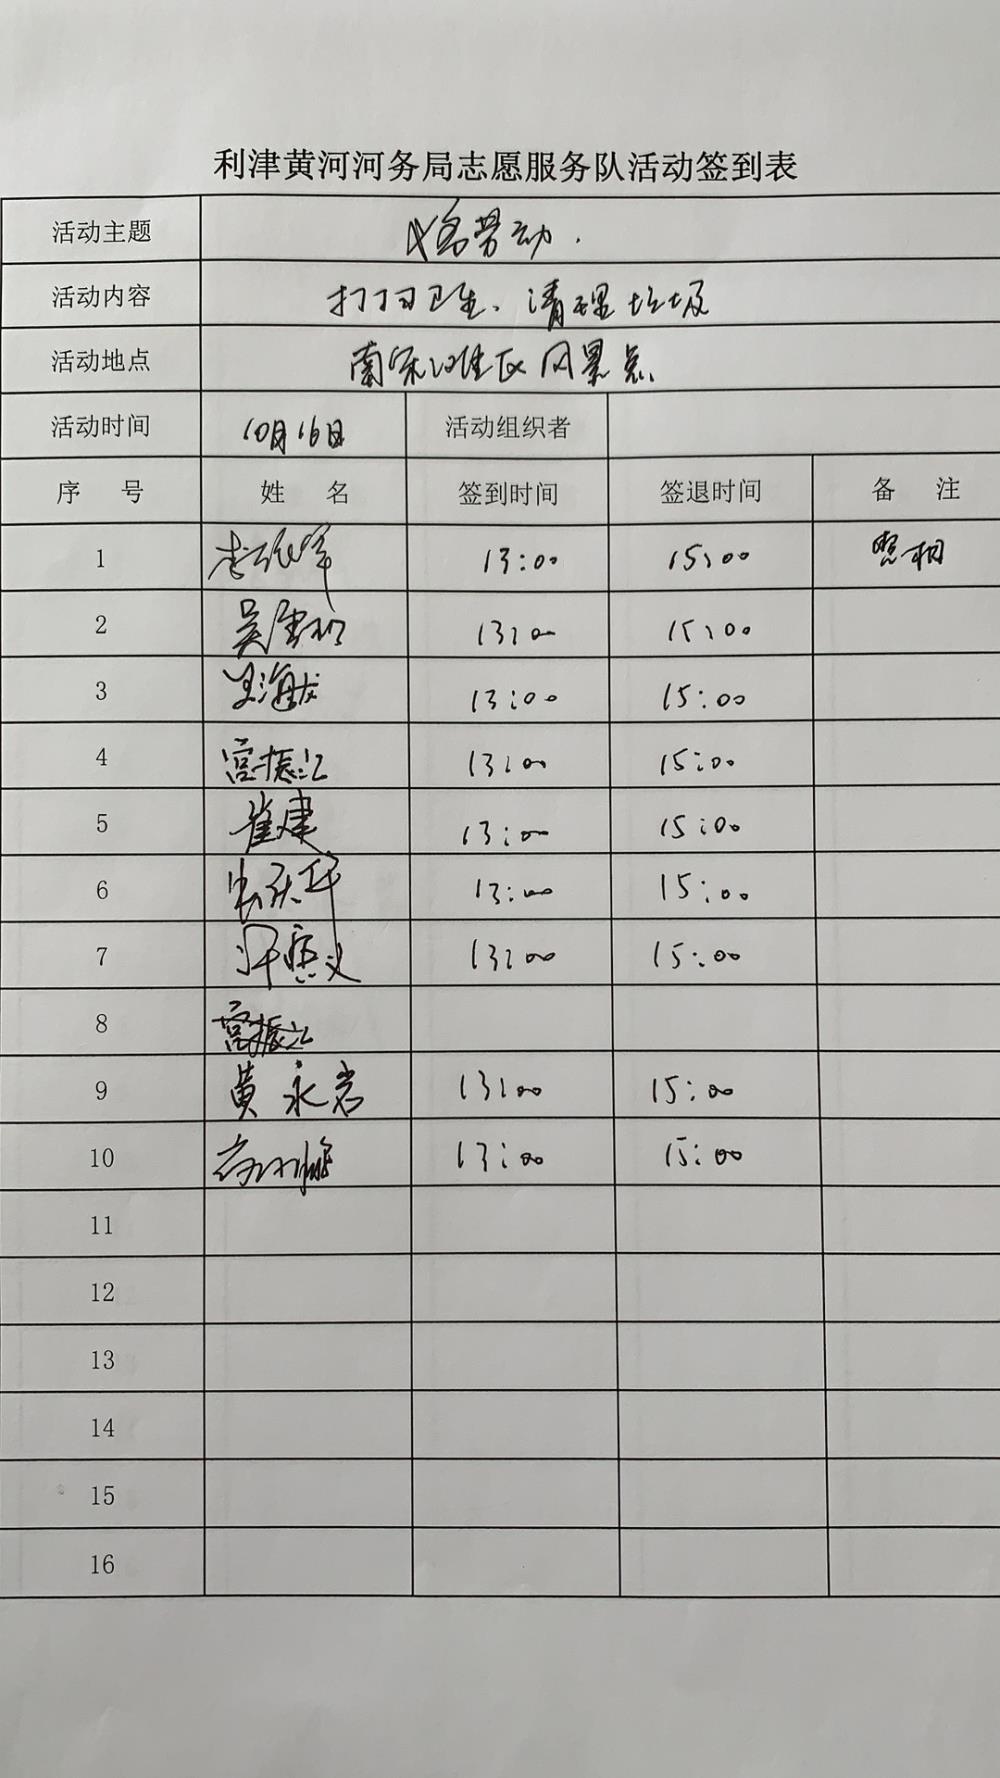 利津黄河河务局志愿服务队活动签到表
活动主题 义务劳动.
活动内容 打扫卫生、清理垃圾
活动地点 南宋滩区风景点
活动时间 10月16日 活动组织者
序 号 姓 名 签到时间 签退时间 备 注
1 13:00 15:00 照相
2 吴 13:00 15:00
3 海龙 13:00 15:00
4 宫振江 13:00 15:00
5 崔建 13:00 15:00
6 13:00 15:00
7 13:00 15:00
8 宫振江
9 黄永岩 13:00 15:00
10 13:00 15:00
11
12
13
14
15
16